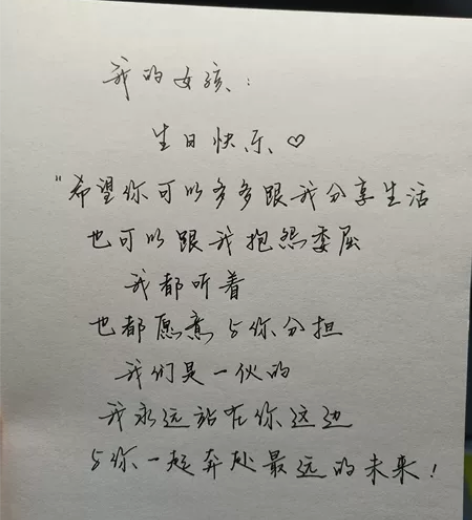 我的女孩:
生日快乐♡
"希望你可以多多跟我分享生活
也可以跟我抱怨委屈
我都听着
也都愿意与你分担
我们是一伙的
我永远站在你这边
与你一起奔赴最远的未来!